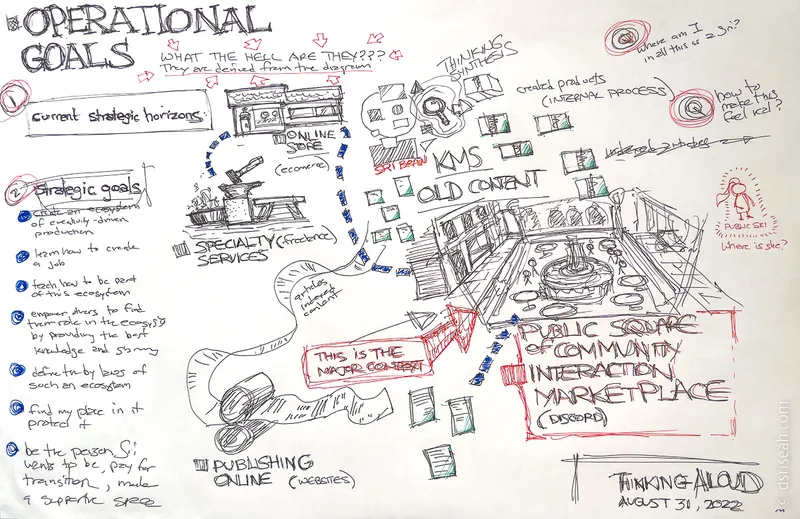 OPERATIONAL
GOALS
WHAT THE HELL ARE THEY???
They are derived from the diagram
1
current strategic horizons
2
strategic goals
create an ecosystem
of creativity-driven
production
learn how to create
a job
teach how to be part
of this ecosystem
empower others to find
their role in the ecosys
by providing the best
knowledge and
define the by laws of
such an ecosystem
find my place in it
protect it
be the person Sri
wants to be, pay for
transition, make
a supportive space
ONLINE
STORE
(ecommerce)
SPECIALTY (freelance)
SERVICES
articles
indexed
content
THINKING
SYNTHESIS
created products
(INTERNAL PROCESS)
SRI BRAIN
KMS
OLD CONTENT
where am I
in all this as a Sri?
how to
make this
feel real?
PUBLIC SRI
Where is she?
THIS IS THE
MAJOR CONTEXT
PUBLIC SQUARE
of COMMUNITY
INTERACTION
MARKETPLACE
(DISCORD)
PUBLISHING
ONLINE (WEBSITES)
THINKING ALOUD
AUGUST 31, 2022
dsriseah.com